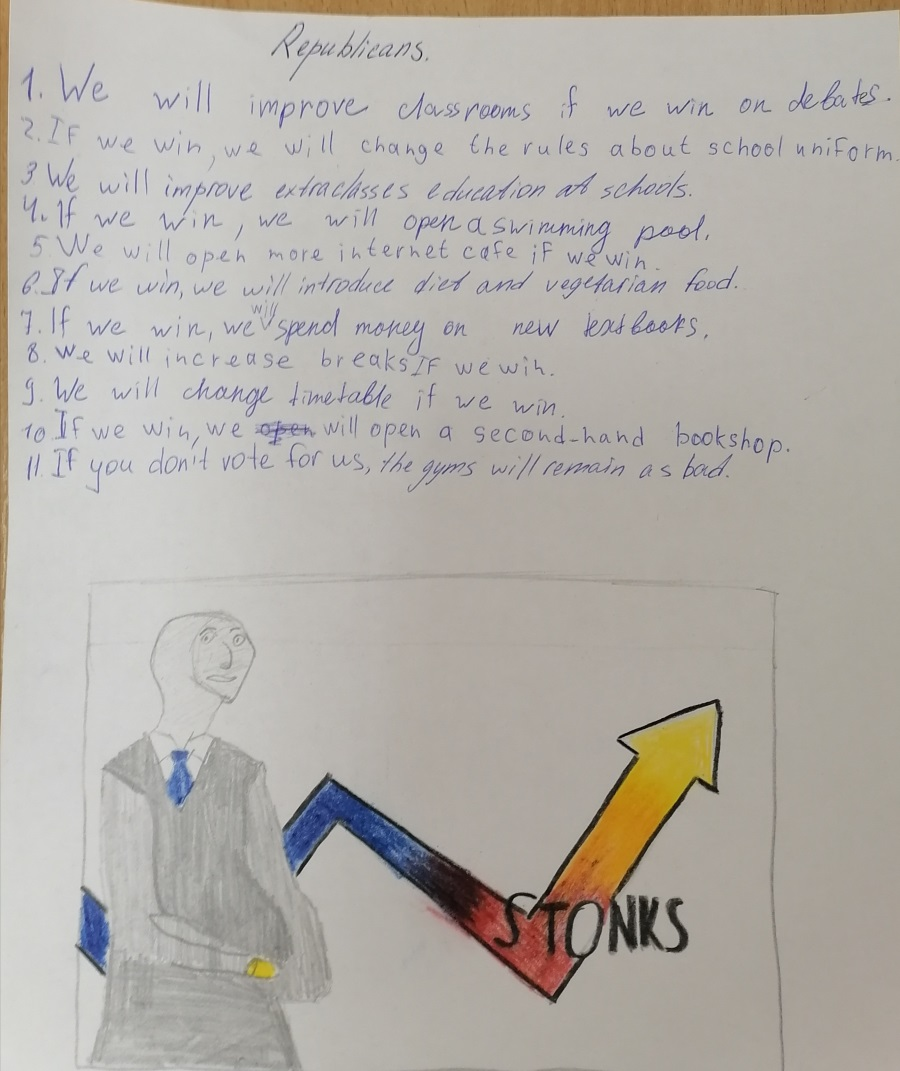 Republicans.
1. We will improve classrooms if we win on debates.
2. If we win, we will change the rules about school uniform.
3 We will improve extraclasses education at schools.
4. If we win, we will open a swimming pool.
5 We will open more internet cafe if we win.
6. If we win, we will introduce diet and vegetarian food.
7. If we win, we will spend money on new textbooks.
8. We will increase breaks If we win.
9. We will change timetable if we win.
10 If we win, we open will open a second-hand bookshop.
11. If you don't vote for us, the gyms will remain as bad.
STONKS